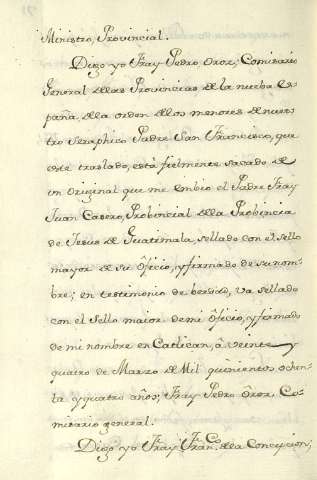 Ministro, Provincial.
Digo yo Fray Pedro, Oroz, Comisario
General de las Provincias de la nueba Es-
paña, de la orden de los menores de nues-
tro Seraphico Padre San Francisco, que
este traslado, está fielmente sacado de
un Original que me embio el Padre Fray
Juan Casero, Probincial de la Probincia
de Jesus de Guatimala, sellado con el sello
mayor de su Oficio, y firmado de su nom-
bre; en testimonio de berdad, va sellado
con el Sello maior de mi Oficio, y firmado
de mi nombre en Catlican, á veinte y
quatro de Marzo de Mil quinientos ochen-
ta y quatro años; Fray Pedro Oroz Co-
misario general.
Digo yo Fray Fran.Co de la Concepcion;